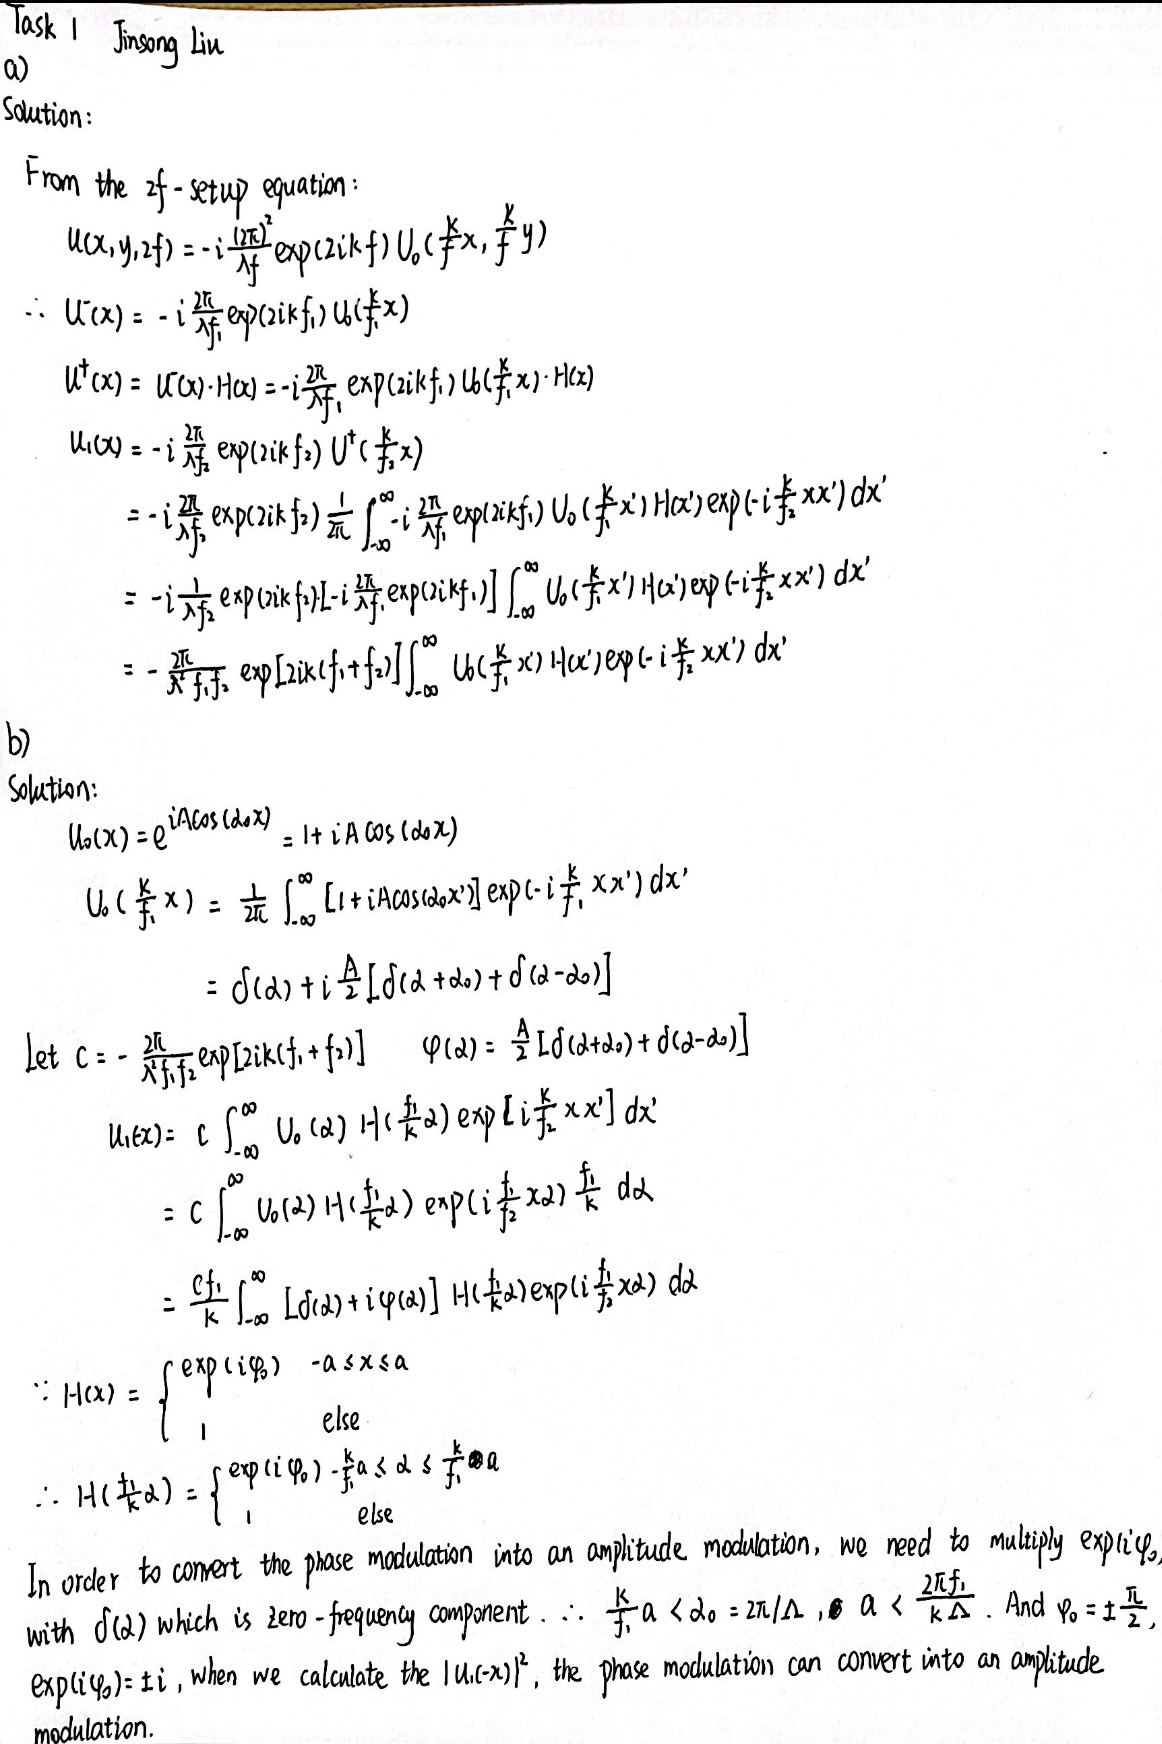 Task 1 Jinsong Liu
a)
Solution:
From the 2f-setup equation:
u(x,y,2f) = -i (2π)²/λf exp(2ikf) U₀(k/f x, k/f y)
∴ U⁻(x) = -i 2π/λf₁ exp(2ikf₁) U₀(k/f₁ x)
U⁺(x) = U⁻(x)·H(x) = -i 2π/λf₁ exp(2ikf₁) U₀(k/f₁ x)·H(x)
U₁(x) = -i 2π/λf₂ exp(2ikf₂) U⁺(k/f₂ x)
= -i 2π/λf₂ exp(2ikf₂) 1/2π ∫_{-∞}^{∞} -i 2π/λf₁ exp(2ikf₁) U₀(k/f₁ x') H(x') exp(-i k/f₂ xx') dx'
= -i 1/λf₂ exp(2ikf₂)·[-i 2π/λf₁ exp(2ikf₁)] ∫_{-∞}^{∞} U₀(k/f₁ x') H(x') exp(-i k/f₂ xx') dx'
= - 2π/λ²f₁f₂ exp[2ik(f₁+f₂)] ∫_{-∞}^{∞} U₀(k/f₁ x') H(x') exp(-i k/f₂ xx') dx'
b)
Solution:
U₀(x) = e^{iAcos(α₀x)} = 1 + iAcos(α₀x)
U₀(k/f₁ x) = 1/2π ∫_{-∞}^{∞} [1 + iAcos(α₀x')] exp(-i k/f₁ xx') dx'
= δ(α) + i A/2 [δ(α+α₀) + δ(α-α₀)]
Let C = - 2π/λ²f₁f₂ exp[2ik(f₁+f₂)] φ(α) = A/2 [δ(α+α₀) + δ(α-α₀)]
U₁(-x) = C ∫_{-∞}^{∞} U₀(α) H(f₁/k α) exp[i k/f₂ xx'] dx'
= C ∫_{-∞}^{∞} U₀(α) H(f₁/k α) exp(i f₁/f₂ xα) f₁/k dα
= Cf₁/k ∫_{-∞}^{∞} [δ(α) + iφ(α)] H(f₁/k α) exp(i f₁/f₂ xα) dα
∵ H(x) = { exp(iφ₀) -a ≤ x ≤ a
1 else
∴ H(f₁/k α) = { exp(iφ₀) -k/f₁ a ≤ α ≤ k/f₁ a
1 else
In order to convert the phase modulation into an amplitude modulation, we need to multiply exp(iφ₀)
with δ(α) which is zero-frequency component. ∴ k/f₁ a < α₀ = 2π/Λ, a < 2πf₁/kΛ. And φ₀ = ±π/2,
exp(iφ₀) = ±i, when we calculate the |U₁(-x)|², the phase modulation can convert into an amplitude
modulation.